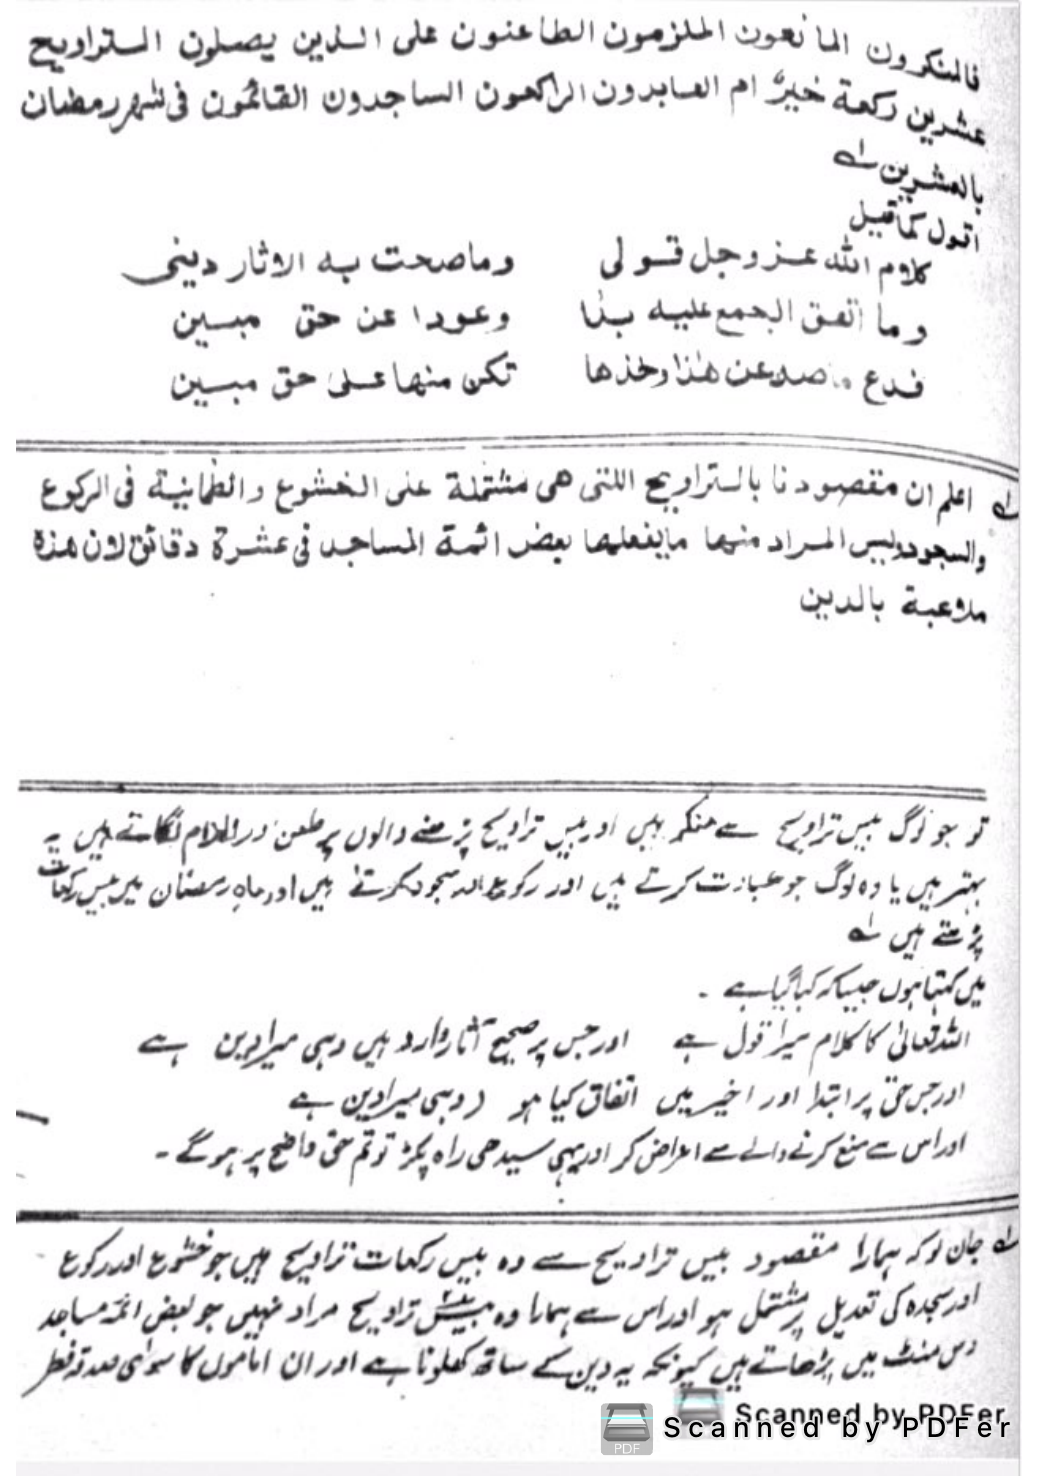 فالمنكرون المانعون الملزمون الطاعنون على الذين يصلون التراويح
عشرين ركعة خيرٌ ام العابدون الراكعون الساجدون القائمون فى شهر رمضان
بالعشرين لـه
اقول كما قيل
كلام الله عز وجل قولى وما صحت به الاثار دينى
وما اتفق الجمع عليه بدا وعودا عن حق مبين
فدع ما صد عن هذا وخذها تكن منها على حق مبين
لـه اعلم ان مقصودنا بالتراويح اللتى هى مشتملة على الخشوع والطمانية فى الركوع
والسجود وليس المراد منها ما يفعلها بعض ائمة المساجد فى عشرة دقائق لان هذه
ملاعبة بالدين
تو جو لوگ بیس تراویح سے منکر ہیں اور بیس تراویح پڑھنے والوں پر طعن اور الزام لگاتے ہیں یہ
بہتر ہیں یا وہ لوگ جو عبادت کرتے ہیں اور رکوع اور سجود کرتے ہیں اور ماہِ رمضان میں بیس رکعات
پڑھتے ہیں لـه
میں کہتا ہوں جیسا کہ کہا گیا ہے ۔
اللہ تعالیٰ کا کلام میرا قول ہے اور جس پر صحیح آثار وارد ہیں وہی میرا دین ہے
اور جس حق پر ابتدا اور اخیر میں اتفاق کیا ہو (وہی میرا دین ہے
اور اس سے منع کرنے والے سے اعراض کر اور یہی سیدھی راہ پکڑ تو تم حق واضح پر ہوگے ۔
لـه جان لو کہ ہمارا مقصود بیس تراویح سے وہ بیس رکعات تراویح ہیں جو خشوع اور رکوع
اور سجدہ کی تعدیل پر مشتمل ہو اور اس سے ہمارا وہ بیس تراویح مراد نہیں جو بعض ائمہ مساجد
دس منٹ میں پڑھاتے ہیں کیونکہ یہ دین کے ساتھ کھلونا ہے اور ان اماموں کا سوائے صدقہ فطر
Scanned by PDFer
Scanned by PDFer